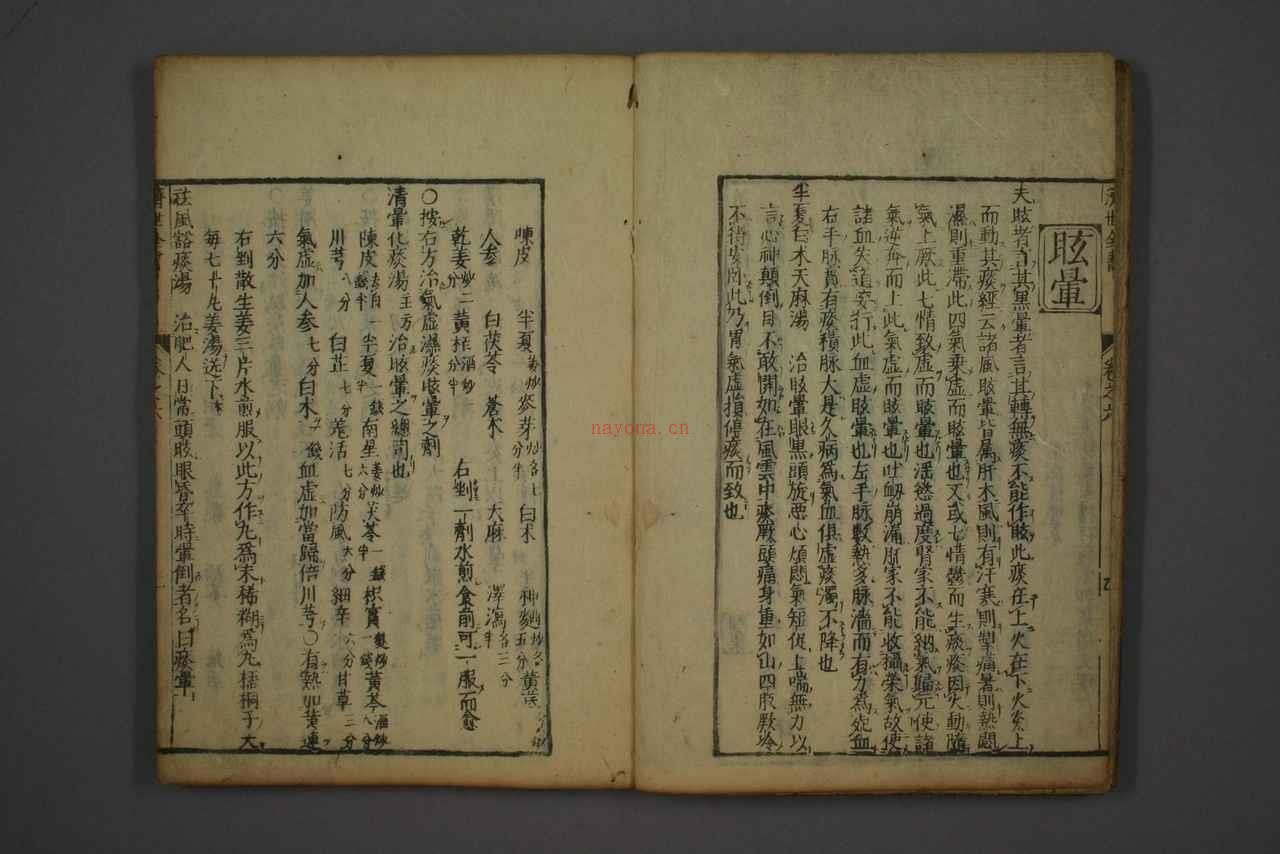 眩暈
夫眩者言其黑暈者言其轉無痰不能作眩此痰在上火在下火炎上
而動其痰經云諸風眩暈皆属肝木風則有汗寒則掣痛暑則熱悶
濕則重滞此四氣乗虚而眩暈也又或七情鬱而生痰痰因火動隨
氣上厥此七情致虚而眩暈也淫慾過度腎家不能納氣歸元使諸
氣逆奔而上此氣虚而眩暈也吐衂崩漏肝家不能收攝栄氣故使
諸血失道妄行此血虚眩暈也左手脉数熱多脉濇而有力為死血
右手脉實有痰積脉大是久病為氣血俱虚痰濁不降也
半夏白木天麻湯 治眩暈眼黒頭旋悪心煩悶氣短促上喘無力以
言心神顛倒目不敢開如在風雲中痰厥頭痛身重如山四肢厥冷
不得安此乃胃氣虚損停痰而致也
陳皮 半夏姜炒 麥芽 白术 神麯炒 五分 黄芪
人参 白茯苓 蒼木 天麻 澤瀉各三分半
乾姜炒二分 黄栢酒炒分半 右剉一劑水煎食前可一服而愈
○按右方治氣虚濕痰眩暈之劑
清暈化痰湯 王方 治眩暈之總司也
陳皮去白一錢半 半夏一錢半 南星姜炒六分 茯苓一錢 枳實麸炒一錢 黄芩酒炒八分
川芎八分 白芷七分 羗活七分 防風六分 細辛六分 甘草三分
氣虚加人参七分白木一錢血虚加當歸倍川芎○有熱加黄連
六分
右剉散生姜三片水煎服以此方作丸為末稀糊為丸梧桐子大
每七十丸姜湯送下
祛風豁痰湯 治肥人日常頭眩眼昏卒時暈倒者名曰痰暈
濟世全書
卷之六
nayona.cn